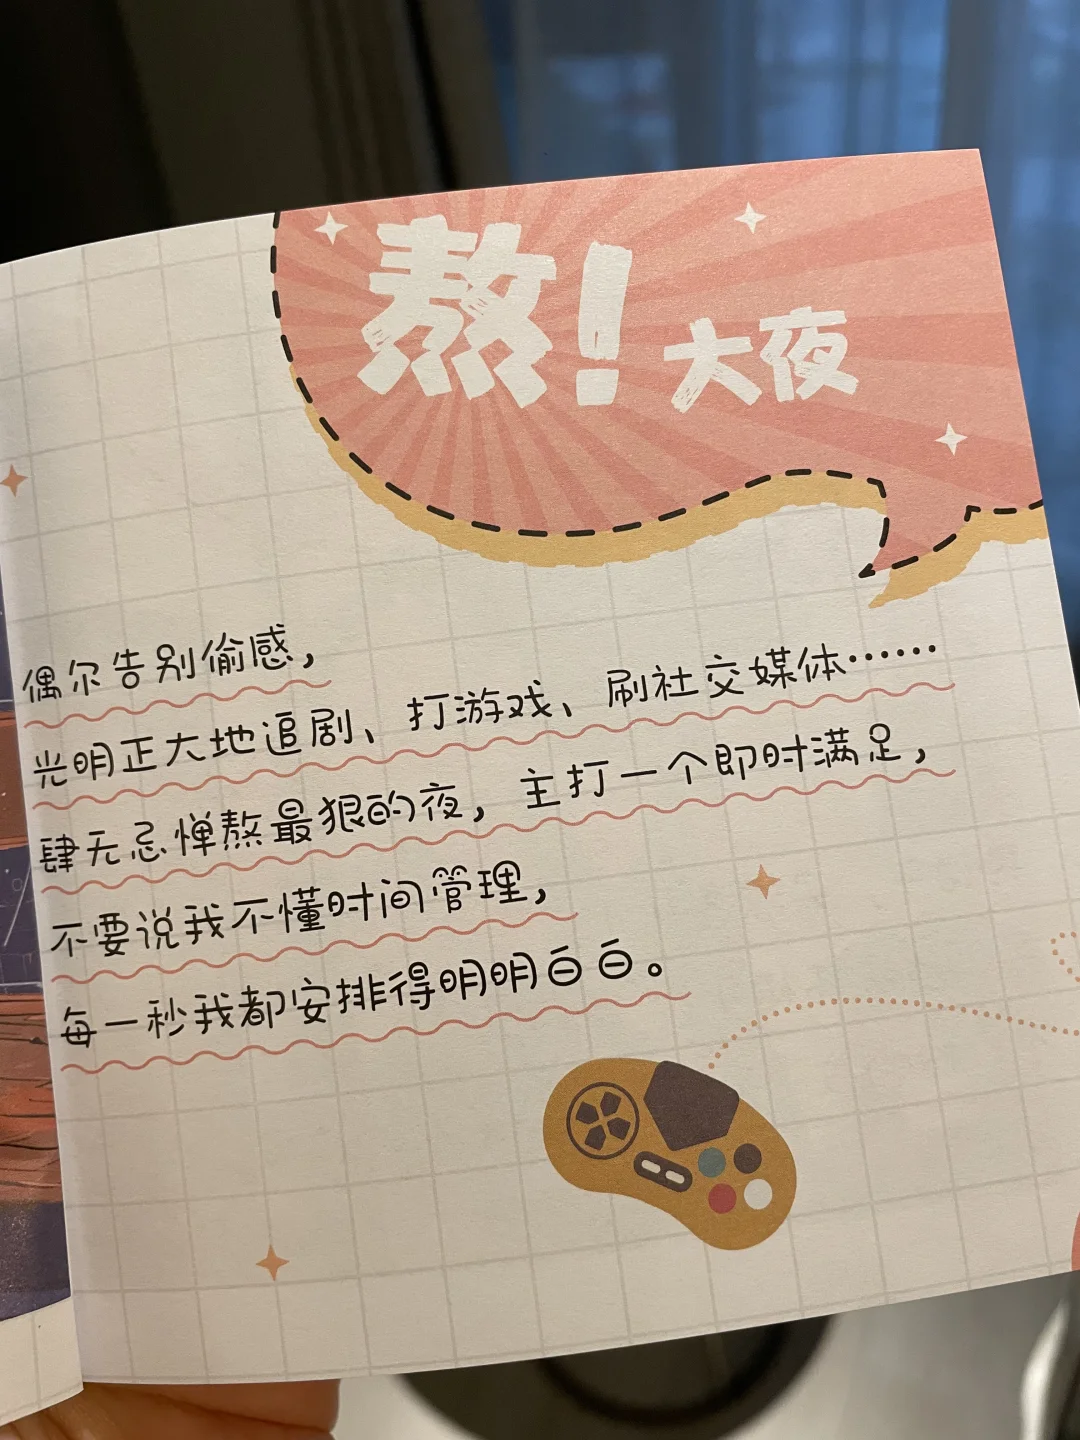 熬！大夜
偶尔告别偷感，
光明正大地追剧、打游戏、刷社交媒体……
肆无忌惮熬最狠的夜，主打一个即时满足，
不要说我不懂时间管理，
每一秒我都安排得明明白白。